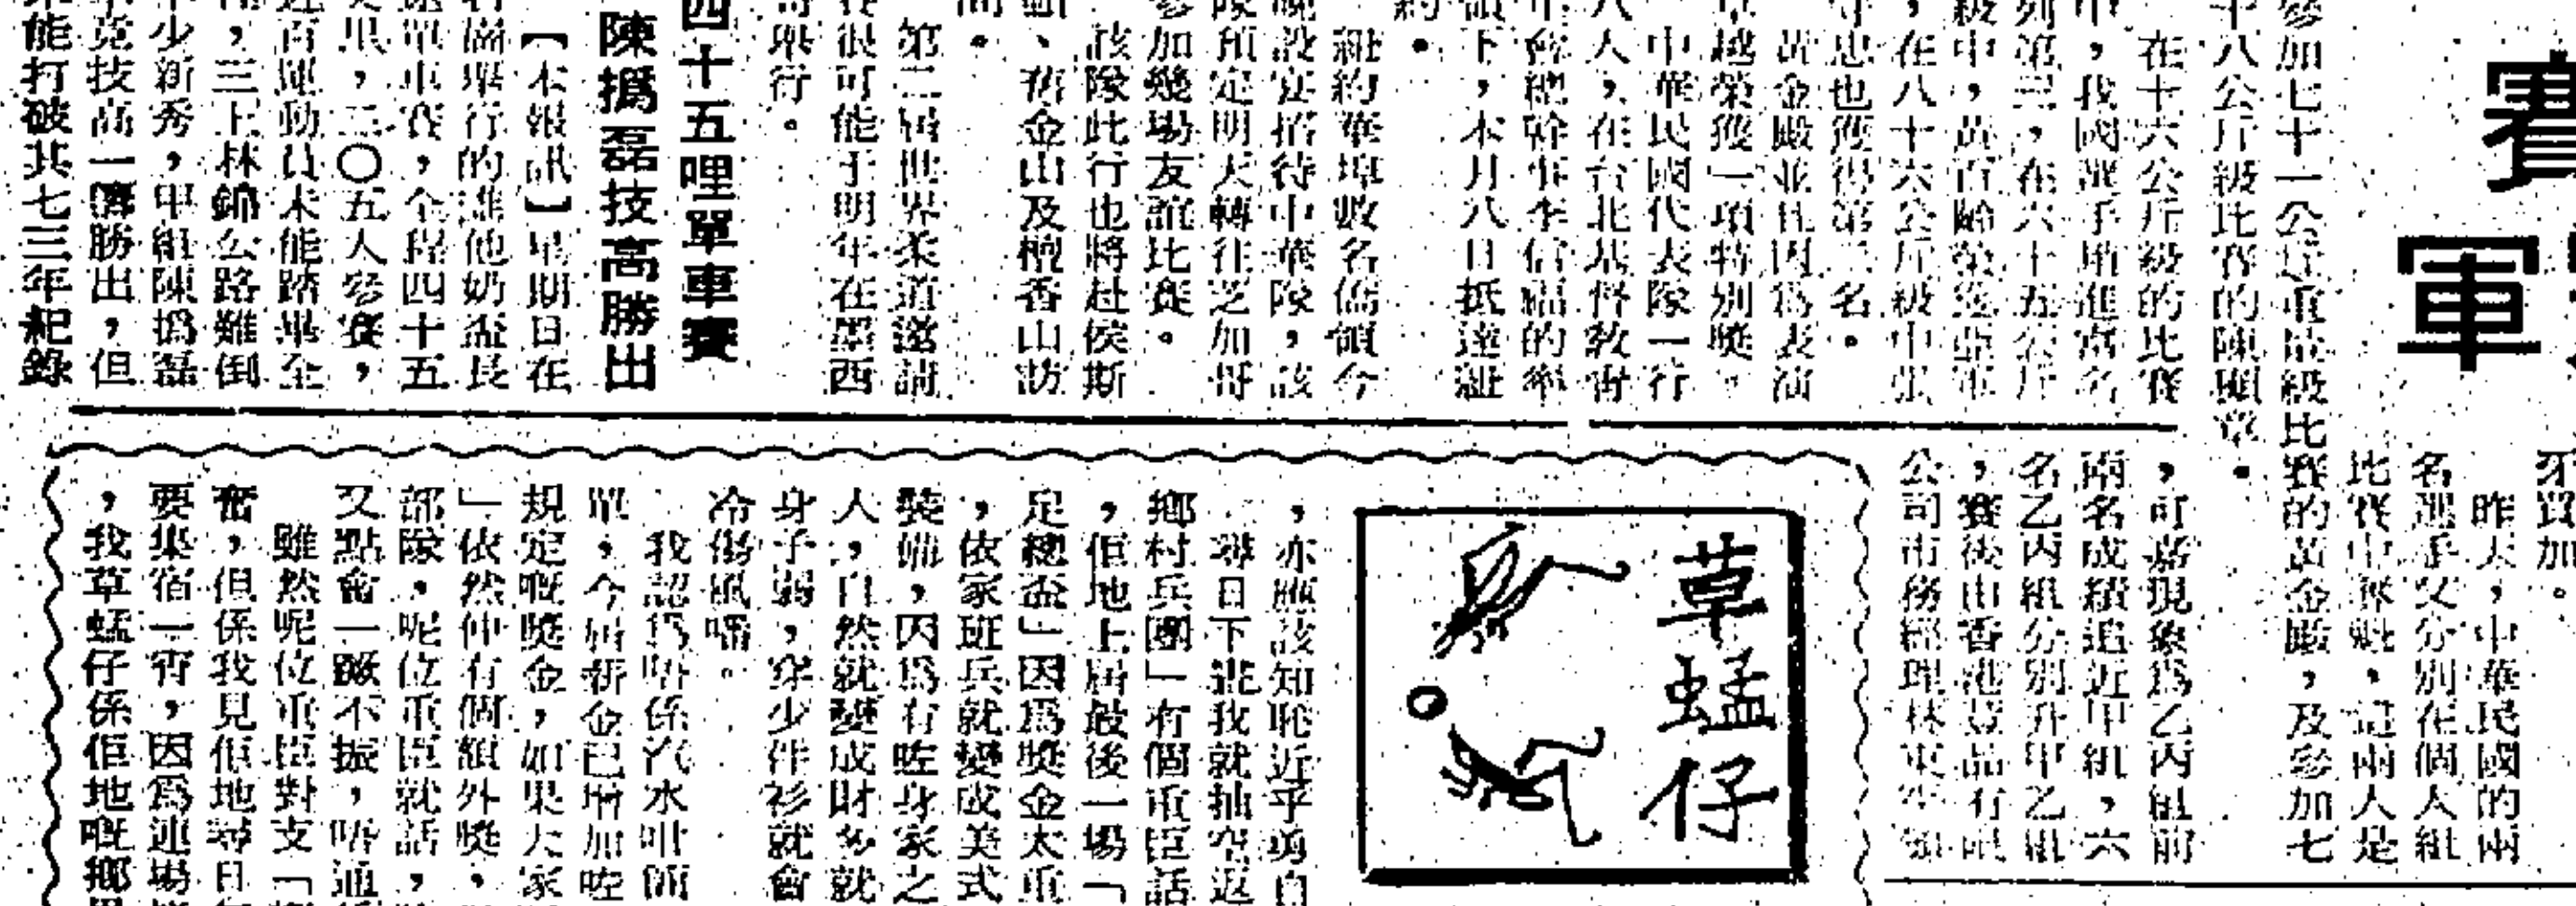 賽
軍
參加七十一公斤重量級比賽的黃金殿，及參加七
十八公斤級比賽的陳顯章。
在十六公斤級的比賽
中，我國選手
列第三，在六十五公斤
級中，黃百齡榮獲亞軍
，在八十六公斤級中張
守忠也獲得第三名。
黃金殿並且因爲表演
卓越榮獲一項特別獎。
中華民國代表隊一行
八人，在台北基督敎靑
年會總幹事李信福的率
領下，本月八日抵達紐
約。
紐約華埠數名僑領今
晚設宴招待中華隊，該
隊預定明天轉往芝加哥
參加幾場友誼比賽。
該隊此行也將赴侯斯
頓、舊金山及檀香山訪
問。
第二屆世界柔道邀請
賽很可能于明年在墨西
哥舉行。
四十五哩單車賽
陳撝磊技高勝出
【本報訊】星期日在
石崗舉行的維他奶盃長
途單車賽，全程四十五
英里，二〇五人參賽，
近百運動員未能踏畢全
程，三上林錦公路難倒
不少新秀，甲組陳撝磊
單竞技高一籌勝出，但
未能打破其七三年紀錄
牙買加。
昨天，中華民國的兩
名選手又分別在個人組
比賽中奪魁，這兩人是
，可嘉現象爲乙丙組前
兩名成績追近甲組，六
名乙丙組分別升甲乙組
，賽後由香港荳品有限
公司市務經理林東
草蜢仔
，亦應該知恥近乎勇自
尋日下晝我就抽空返
鄉村兵團」有個重臣話
，佢地上屆最後一場「
足總盃」因爲獎金太重
，依家班兵就變成美式
裝備，因爲有咗身家之
人，自然就變成財多就
身子弱，穿少件衫就會
冷傷風嚕。
我認爲唔係汽水咁簡
單，今屆薪金已增加咗
規定嘅獎金，如果大家
」依然仲有個額外獎，
部隊，呢位重臣就話，
又點會一蹶不振，唔通
雖然呢位重臣對支「
奮，但係我見佢地尋日
要集宿一宵，因爲連場
，我草蜢仔係佢地嘅鄉